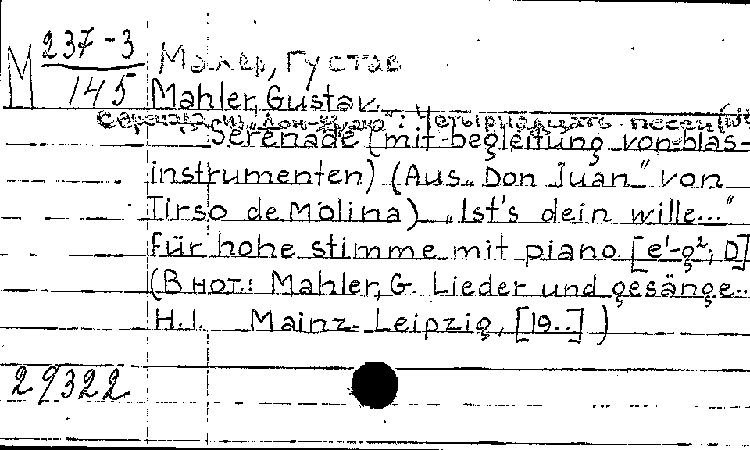 М 237-3
145
Малер, Густав
Mahler, Gustav
Серенада из "Дон-Жуана": Четырнадцать песен
Serenade (mit begleitung von blas-
instrumenten) (Aus „Don Juan" von
Tirso de Molina) „Ist's dein wille..."
für hohe stimme mit piano [e¹-g²; D]
(В нот.: Mahler, G. Lieder und gesänge..
H.I. Mainz-Leipzig, [19..] )
29322